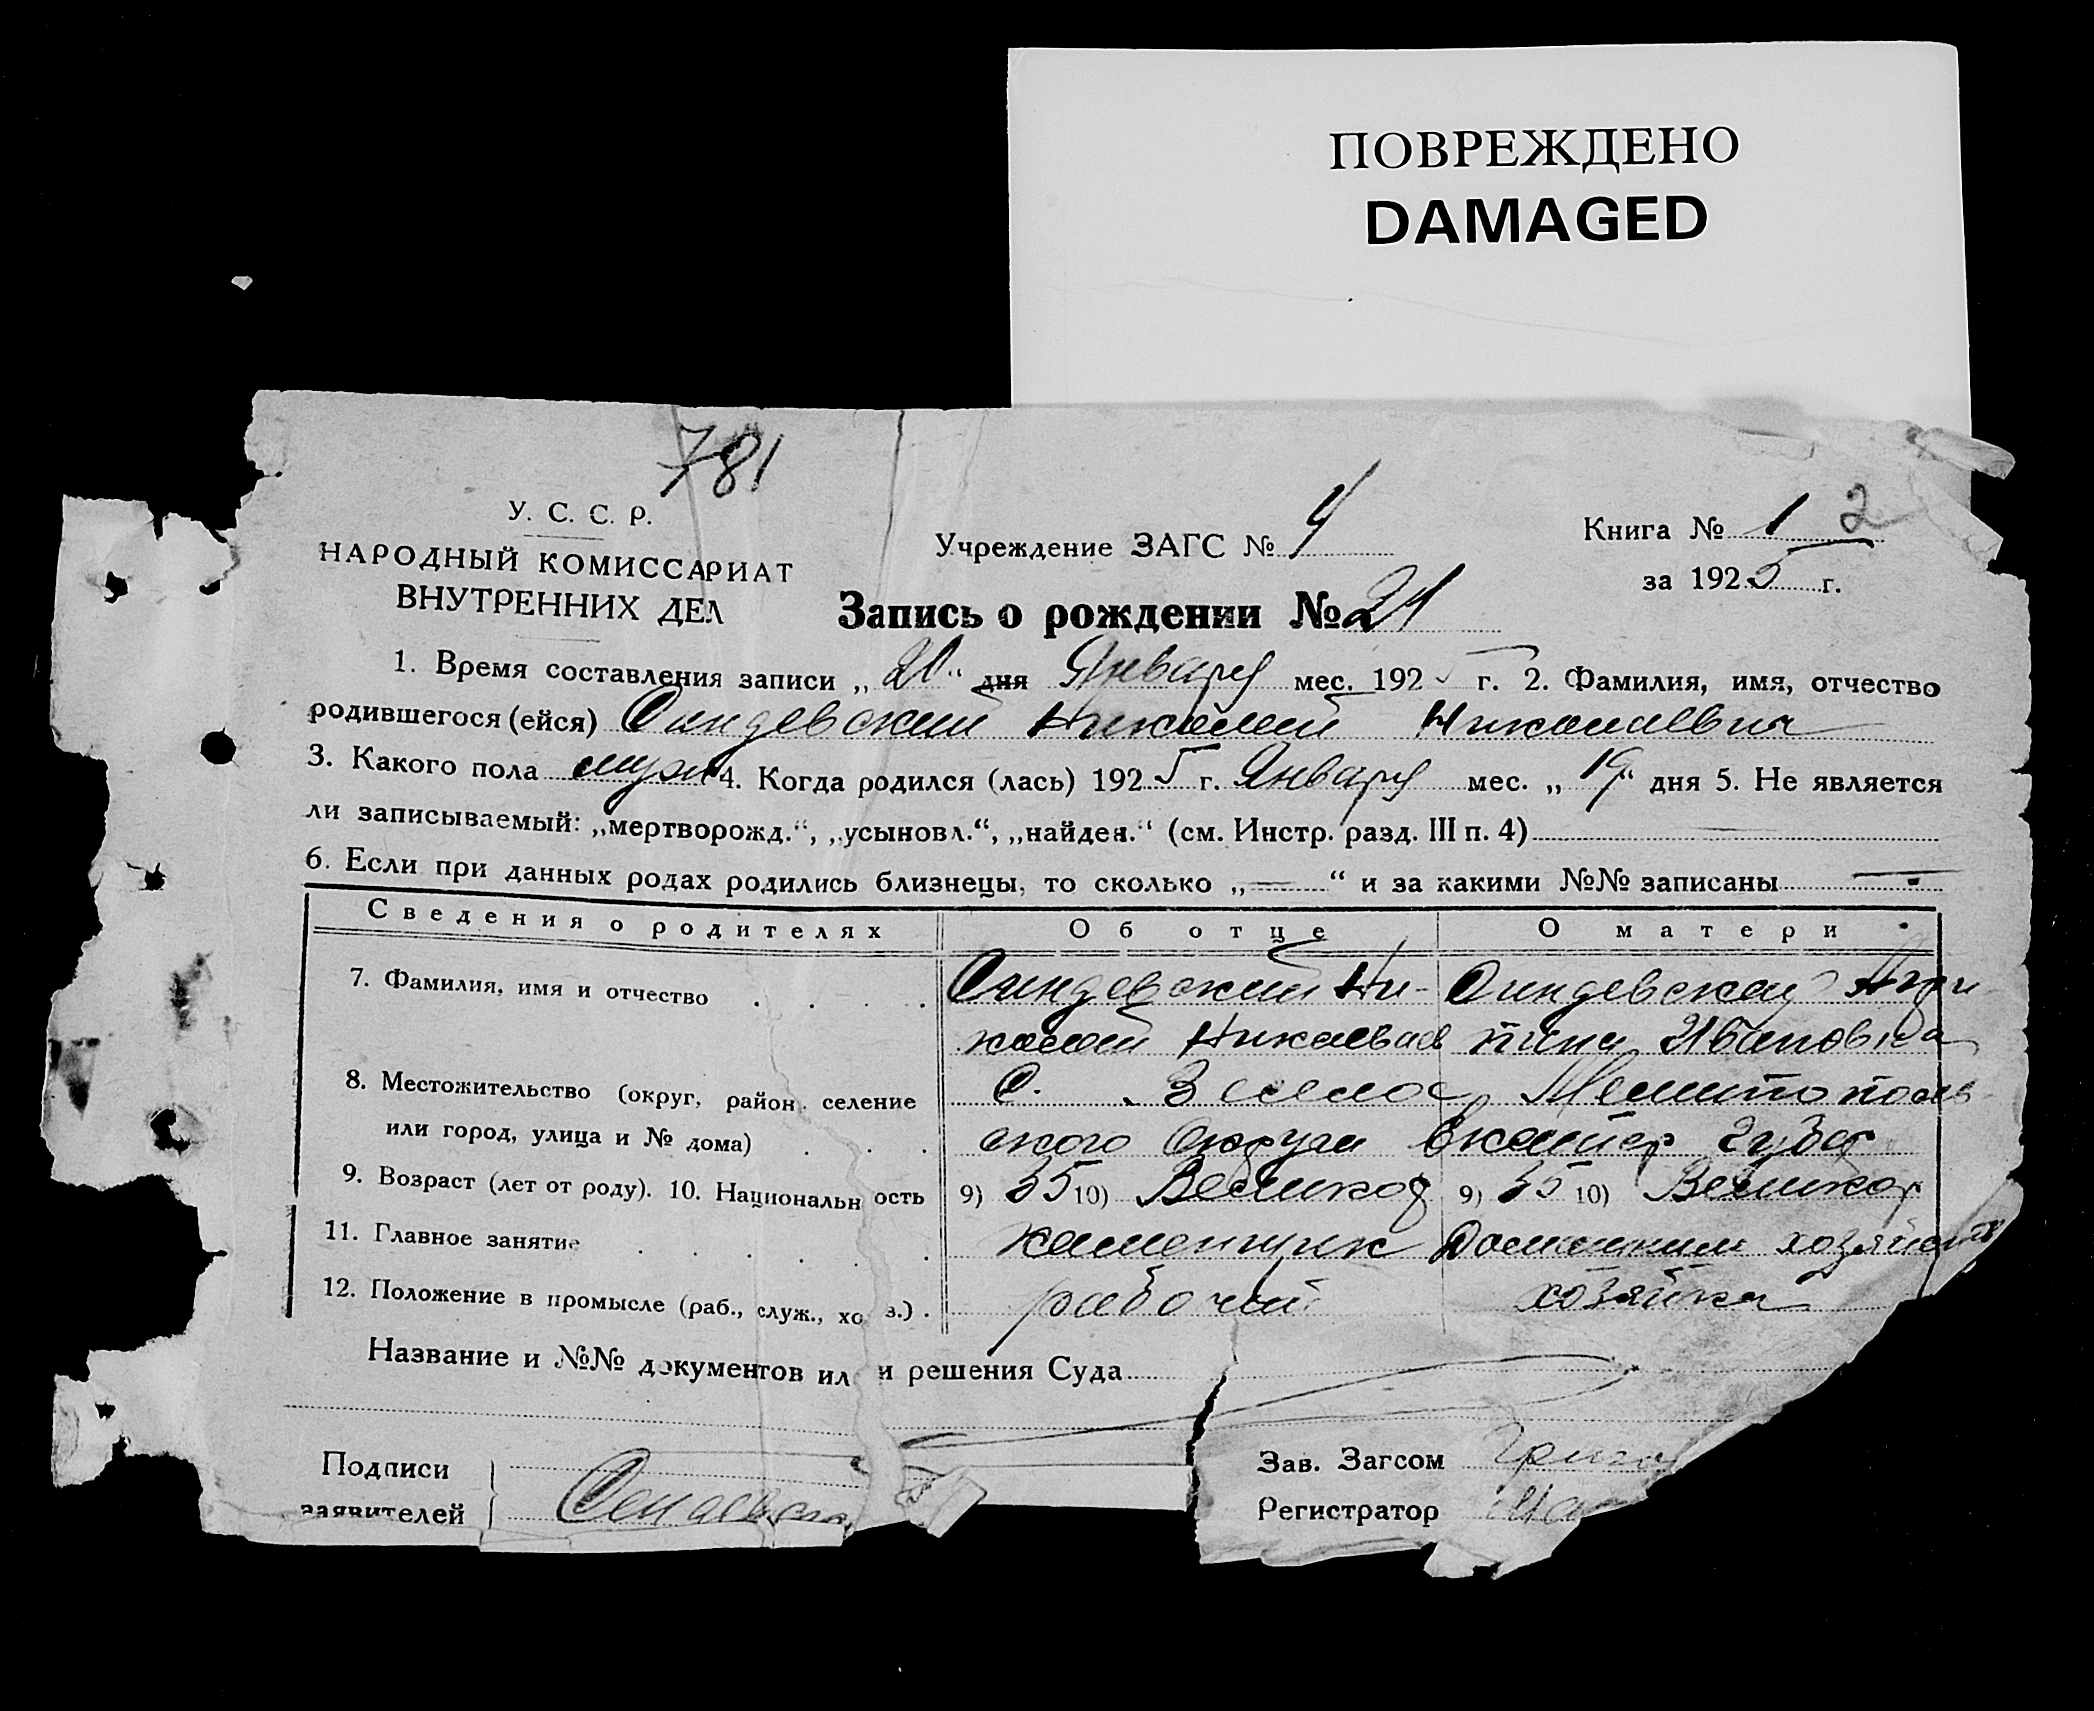 ПОВРЕЖДЕНО
DAMAGED
781
У. С. С. Р.
НАРОДНЫЙ КОМИССАРИАТ
ВНУТРЕННИХ ДЕЛ
Учреждение ЗАГС № 4
Книга № 1 2
за 1925 г.
Запись о рождении № 21
1. Время составления записи „20“ дня Января мес. 1925 г. 2. Фамилия, имя, отчество
родившегося (ейся) Синдевский Николай Николаевич
3. Какого пола муж 4. Когда родился (лась) 1925 г. Января мес. „19“ дня 5. Не является
ли записываемый: „мертворожд.“, „усыновл.“, „найден.“ (см. Инстр. разд. III п. 4)
6. Если при данных родах родились близнецы, то сколько „—“ и за какими №№ записаны —
Сведения о родителях Об отце О матери
7. Фамилия, имя и отчество Синдевский Ни- Синдевская Агри
колай Николаев пина Ивановна
8. Местожительство (округ, район, селение С. Мелитополь
или город, улица и № дома) ского Округа Екатер губер
9. Возраст (лет от роду). 10. Национальность 9) 35 10) Великор 9) 35 10) Великор
11. Главное занятие каменщик Домашним хозяйств
12. Положение в промысле (раб., служ., хоз.) рабочий хозяйка
Название и №№ документов или решения Суда
Подписи
заявителей
Зав. Загсом
Регистратор